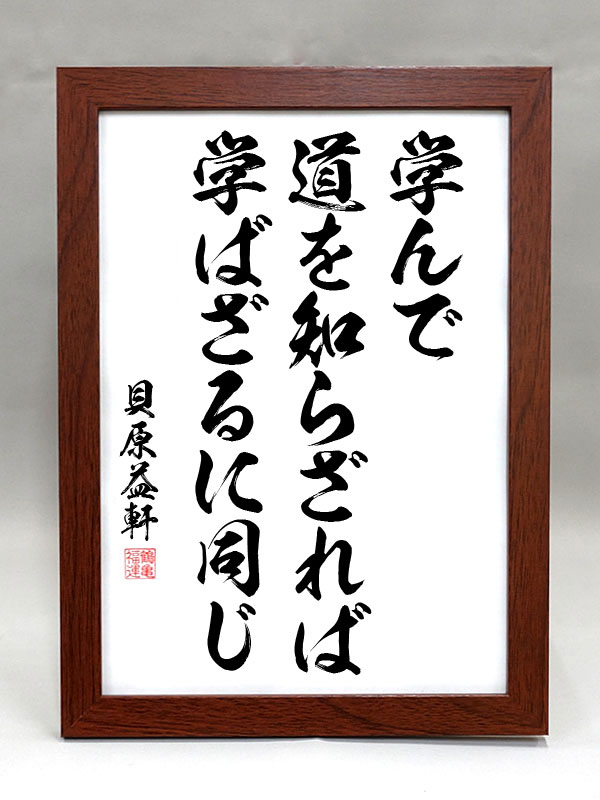 学んで
道を知らざれば
学ばざるに同じ
貝原益軒
鶴亀
福運